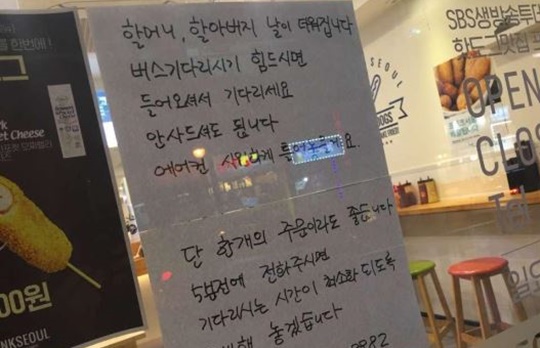 할머니, 할아버지 날이 더워집니다
버스기다리시기 힘드시면
들어오셔서 기다리세요
안사드셔도 됩니다
에어컨 시원하게 틀어놓을게요.
단 한개의 주문이라도 좋습니다
5분전에 전화주시면
기다리시는 시간이 최소화 되도록
놓겠습니다
한번에!
et Cheese
00원
NKSEOUL
SBS생방송투데
핫도그맛집
SEOUL
DOGS
OPEN
CLO
Tel
일요